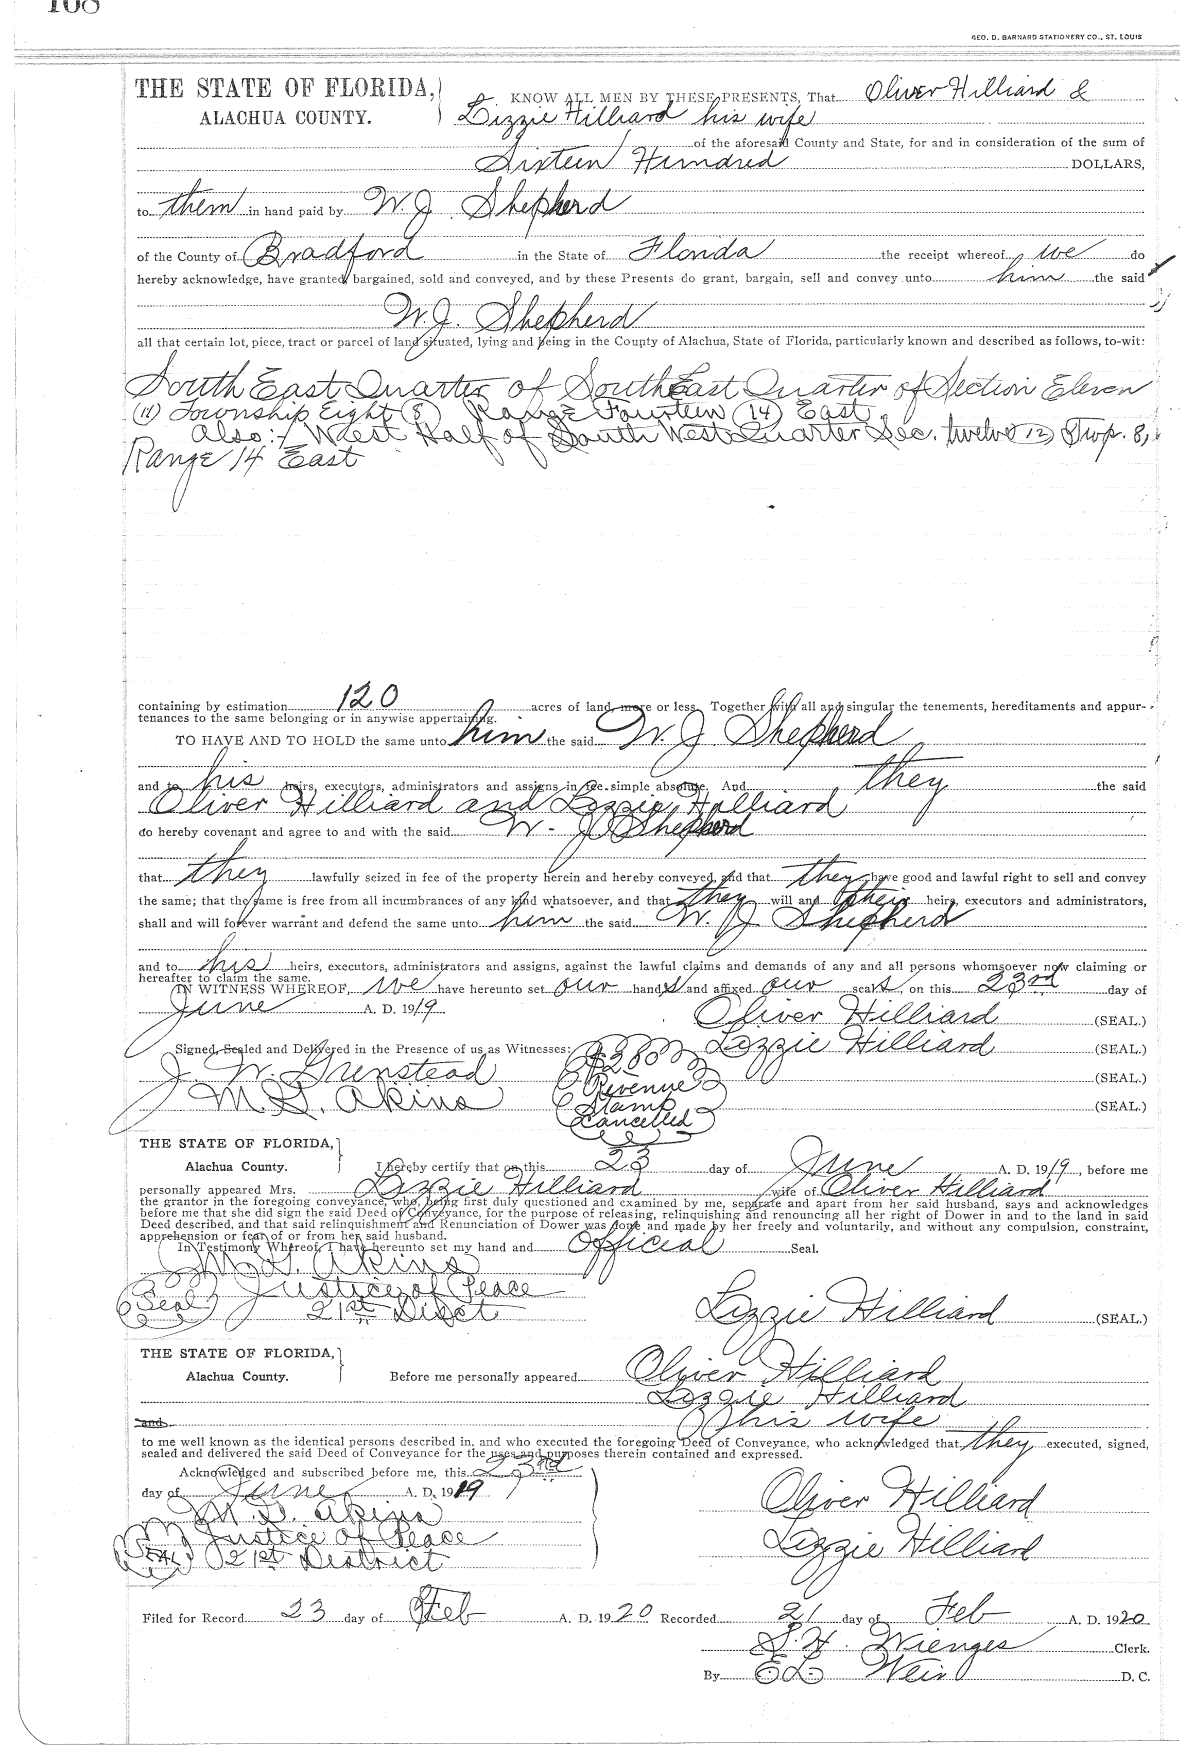 168
GEO. D. BARNARD STATIONERY CO., ST. LOUIS
THE STATE OF FLORIDA, KNOW ALL MEN BY THESE PRESENTS, That Oliver Hilliard &
ALACHUA COUNTY. Lizzie Hilliard his wife
of the aforesaid County and State, for and in consideration of the sum of
Sixteen Hundred DOLLARS,
to them in hand paid by W. J. Shepherd
of the County of Bradford in the State of Florida the receipt whereof we do
hereby acknowledge, have granted, bargained, sold and conveyed, and by these Presents do grant, bargain, sell and convey unto him the said
W. J. Shepherd
all that certain lot, piece, tract or parcel of land situated, lying and being in the County of Alachua, State of Florida, particularly known and described as follows, to-wit:
South East Quarter of South East Quarter of Section Eleven
(11) Township Eight (8) Range Fourteen (14) East.
Also:- West Half of South West Quarter Sec. twelve (12) Twp. 8,
Range 14 East
containing by estimation 120 acres of land, more or less. Together with all and singular the tenements, hereditaments and appur-
tenances to the same belonging or in anywise appertaining.
TO HAVE AND TO HOLD the same unto him the said W. J. Shepherd
and to his heirs, executors, administrators and assigns in fee simple absolute. And they the said
Oliver Hilliard and Lizzie Halliard
do hereby covenant and agree to and with the said W. J. Shepherd
that they lawfully seized in fee of the property herein and hereby conveyed, and that they have good and lawful right to sell and convey
the same; that the same is free from all incumbrances of any kind whatsoever, and that they will and their heirs, executors and administrators,
shall and will forever warrant and defend the same unto him the said W. J Shepherd
and to his heirs, executors, administrators and assigns, against the lawful claims and demands of any and all persons whomsoever now claiming or
hereafter to claim the same.
IN WITNESS WHEREOF, we have hereunto set our hands and affixed our seals, on this 23rd day of
June A. D. 1919
Oliver Hilliard (SEAL.)
Signed, Sealed and Delivered in the Presence of us as Witnesses: Lizzie Hilliard (SEAL.)
J. W. Grinstead (SEAL.)
M. G. Akins (SEAL.)
$2.00
Revenue
Stamp
Cancelled
THE STATE OF FLORIDA,
Alachua County. I hereby certify that on this 23 day of June A. D. 1919, before me
personally appeared Mrs. Lizzie Hilliard wife of Oliver Hilliard
the grantor in the foregoing conveyance, who, being first duly questioned and examined by me, separate and apart from her said husband, says and acknowledges
before me that she did sign the said Deed of Conveyance, for the purpose of releasing, relinquishing and renouncing all her right of Dower in and to the land in said
Deed described, and that said relinquishment and Renunciation of Dower was done and made by her freely and voluntarily, and without any compulsion, constraint,
apprehension or fear of or from her said husband.
In Testimony Whereof, I have hereunto set my hand and official Seal.
M. G. Akins
Seal Justice of Peace
21st Disct Lizzie Hilliard (SEAL.)
THE STATE OF FLORIDA,
Alachua County. Before me personally appeared Oliver Hilliard
Lizzie Hilliard
and his wife
to me well known as the identical persons described in, and who executed the foregoing Deed of Conveyance, who acknowledged that they executed, signed,
sealed and delivered the said Deed of Conveyance for the uses and purposes therein contained and expressed.
Acknowledged and subscribed before me, this 23rd
day of June A. D. 1919 Oliver Hilliard
M. G. Akins
Justice of Peace Lizzie Hilliard
SEAL 21st District
Filed for Record 23 day of Feb A. D. 1920 Recorded 21 day of Feb A. D. 1920
S. H. Wienges Clerk.
By E L Weir D. C.